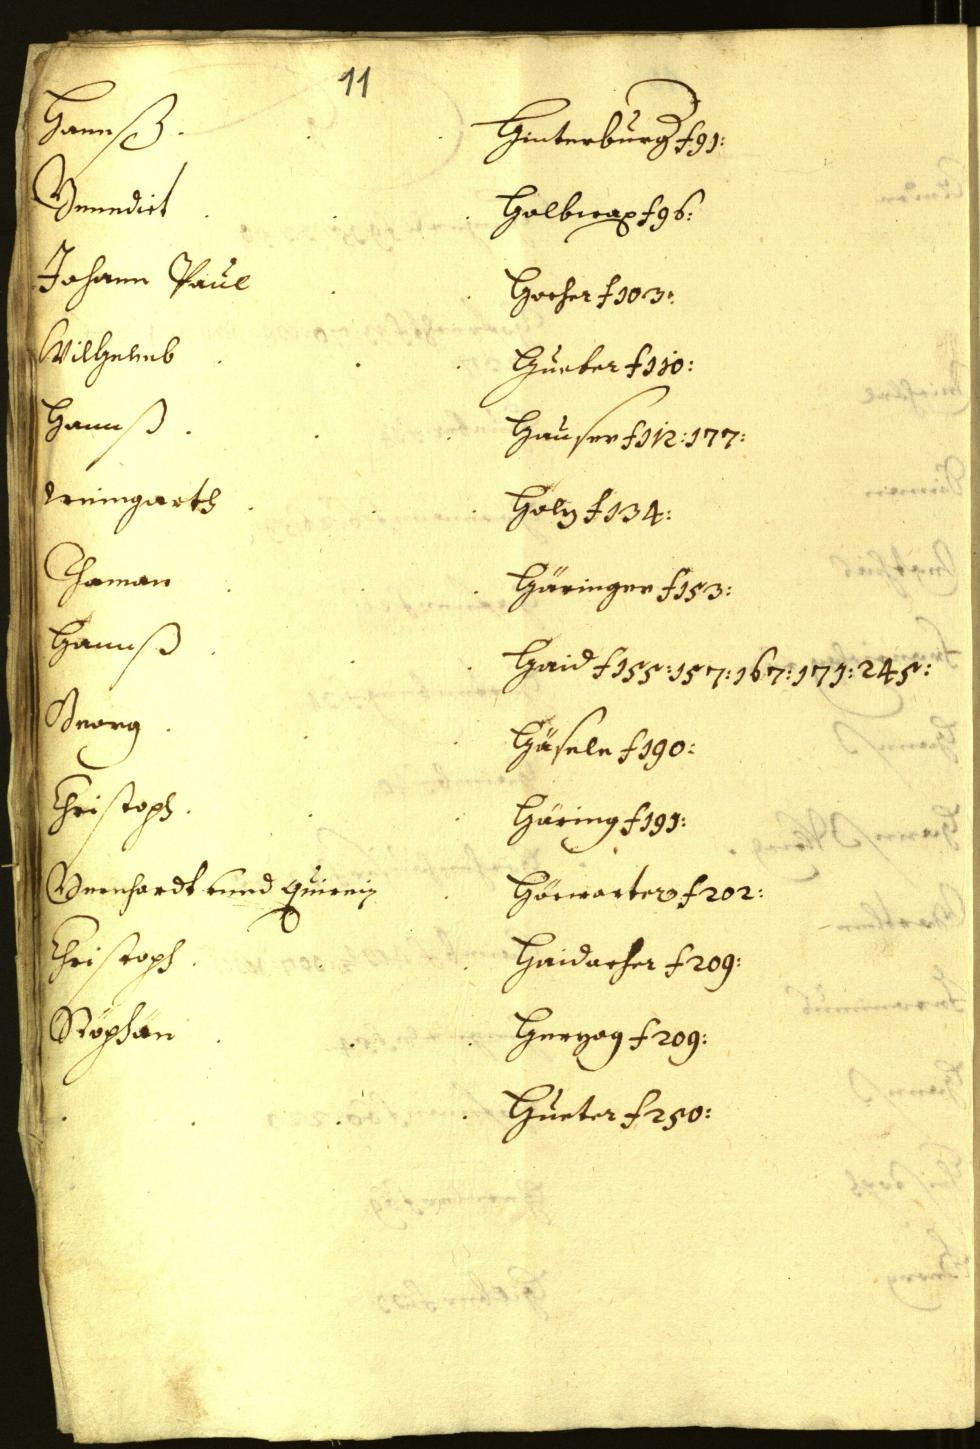 11
Hannß. Hinterburg f 91:
Benedict Halbwax f 96:
Johann Paul Hocher f 103:
Wilhelmb Hueber f 110:
Hannß. Hauser f 112: 177:
Weingarth Holz f 134:
Thoman Häringer f 153:
Hannß Haid f 155: 157: 167: 171: 245:
Georg Häsele f 190:
Christoph. Häring f 191:
Bernhardt unnd Quirein Hörwarter f 202:
Christoph. Haidacher f 209:
Stöphan Herzog f 209:
Hueter f 250: